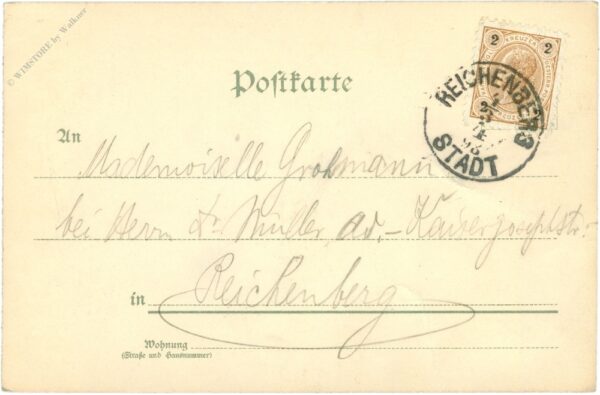 © WIMSTORE by Walkner
Postkarte
2 KREUZER 2
REICHENBERG
STADT
An
Mademoiselle Grohmann
bei Herrn Dr Müller, Adv. - Kaiser Josephstr.
in Reichenberg
Wohnung
(Straße und Hausnummer)